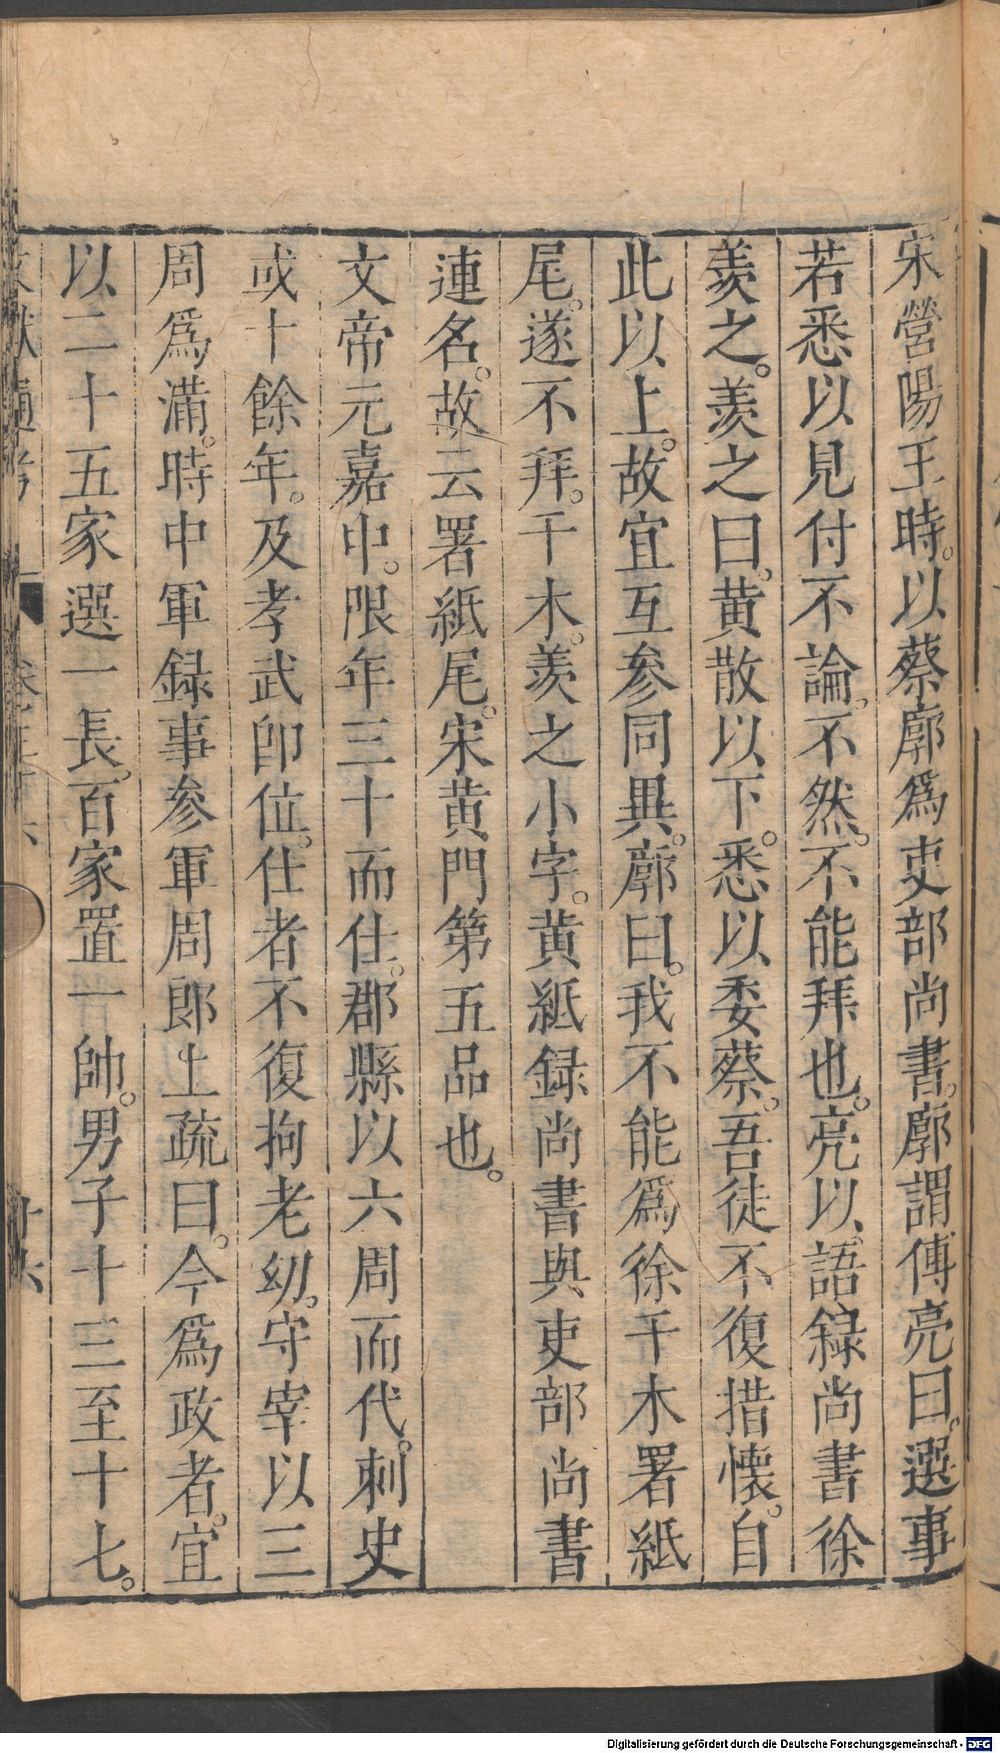 宋營陽王時。以蔡廓爲吏部尚書。廓謂傅亮曰。選事
若悉以見付不論。不然。不能拜也。亮以。語録尚書徐
羨之。羨之曰。黄散以下。悉以委蔡。吾徒不復措懷。自
此以上。故宜互參同異。廓曰。我不能爲徐干木署紙
尾。遂不拜。干木。羨之小字。黄紙録尚書與吏部尚書
連名。故云署紙尾。宋黄門第五品也。
文帝元嘉中。限年三十而仕。郡縣以六周而代。刺史
或十餘年。及孝武即位。仕者不復拘老幼。守宰以三
周爲滿。時中軍録事參軍周郎上疏曰。今爲政者。宜
以二十五家選一長。百家置一帥。男子十三至十七。
文獻通考
Digitalisierung gefördert durch die Deutsche Forschungsgemeinschaft - DFG